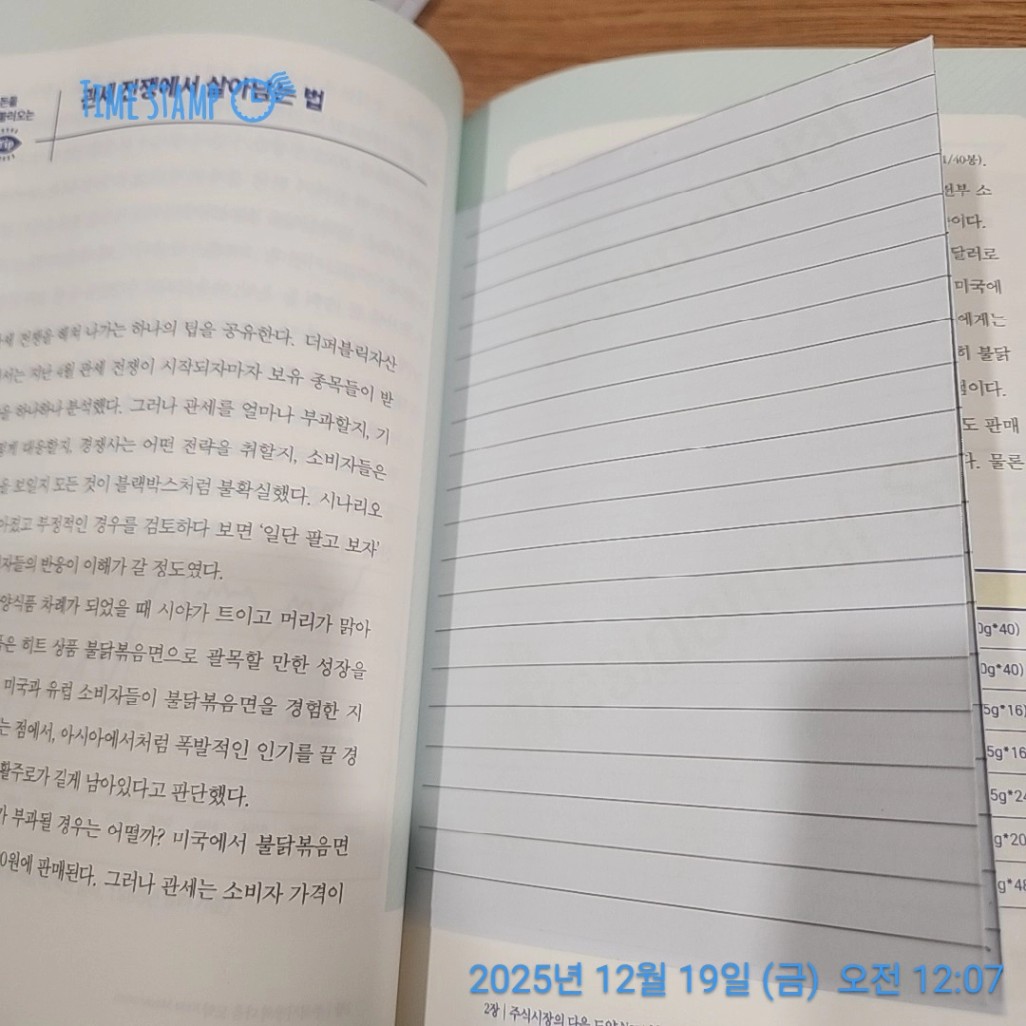 돈을
불러오는
TIP
관세 전쟁에서 살아남는 법
TIME STAMP
전쟁을 헤쳐 나가는 하나의 팁을 공유한다. 더퍼블릭자산
지난 4월 관세 전쟁이 시작되자마자 보유 종목들이 받
하나하나 분석했다. 그러나 관세를 얼마나 부과할지, 기
대응할지, 경쟁사는 어떤 전략을 취할지, 소비자들은
보일지 모든 것이 블랙박스처럼 불확실했다. 시나리오
부정적인 경우를 검토하다 보면 ‘일단 팔고 보자’
반응이 이해가 갈 정도였다.
차례가 되었을 때 시야가 트이고 머리가 맑아
히트 상품 불닭볶음면으로 괄목할 만한 성장을
미국과 유럽 소비자들이 불닭볶음면을 경험한 지
점에서, 아시아에서처럼 폭발적인 인기를 끌 경
활주로가 길게 남아있다고 판단했다.
부과될 경우는 어떨까? 미국에서 불닭볶음면
0원에 판매된다. 그러나 관세는 소비자 가격이
/40봉).
소
이다.
달러로
미국에
에게는
불닭
이다.
도 판매
다. 물론
0g*40)
0g*40)
5g*16)
5g*16
5g*24
g*20
g*48
2장 | 주식시장의 다음
2025년 12월 19일 (금) 오전 12:07